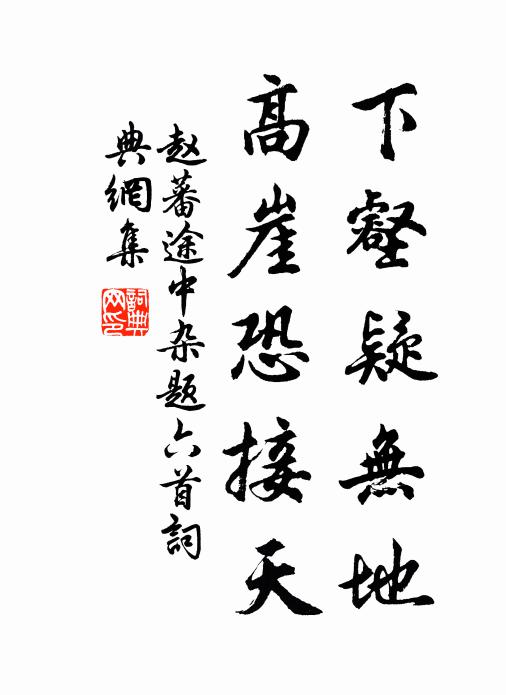 下壑疑無地
高崖恐接天
赵蕃途中杂题六首詞
典網集
詞典
网印